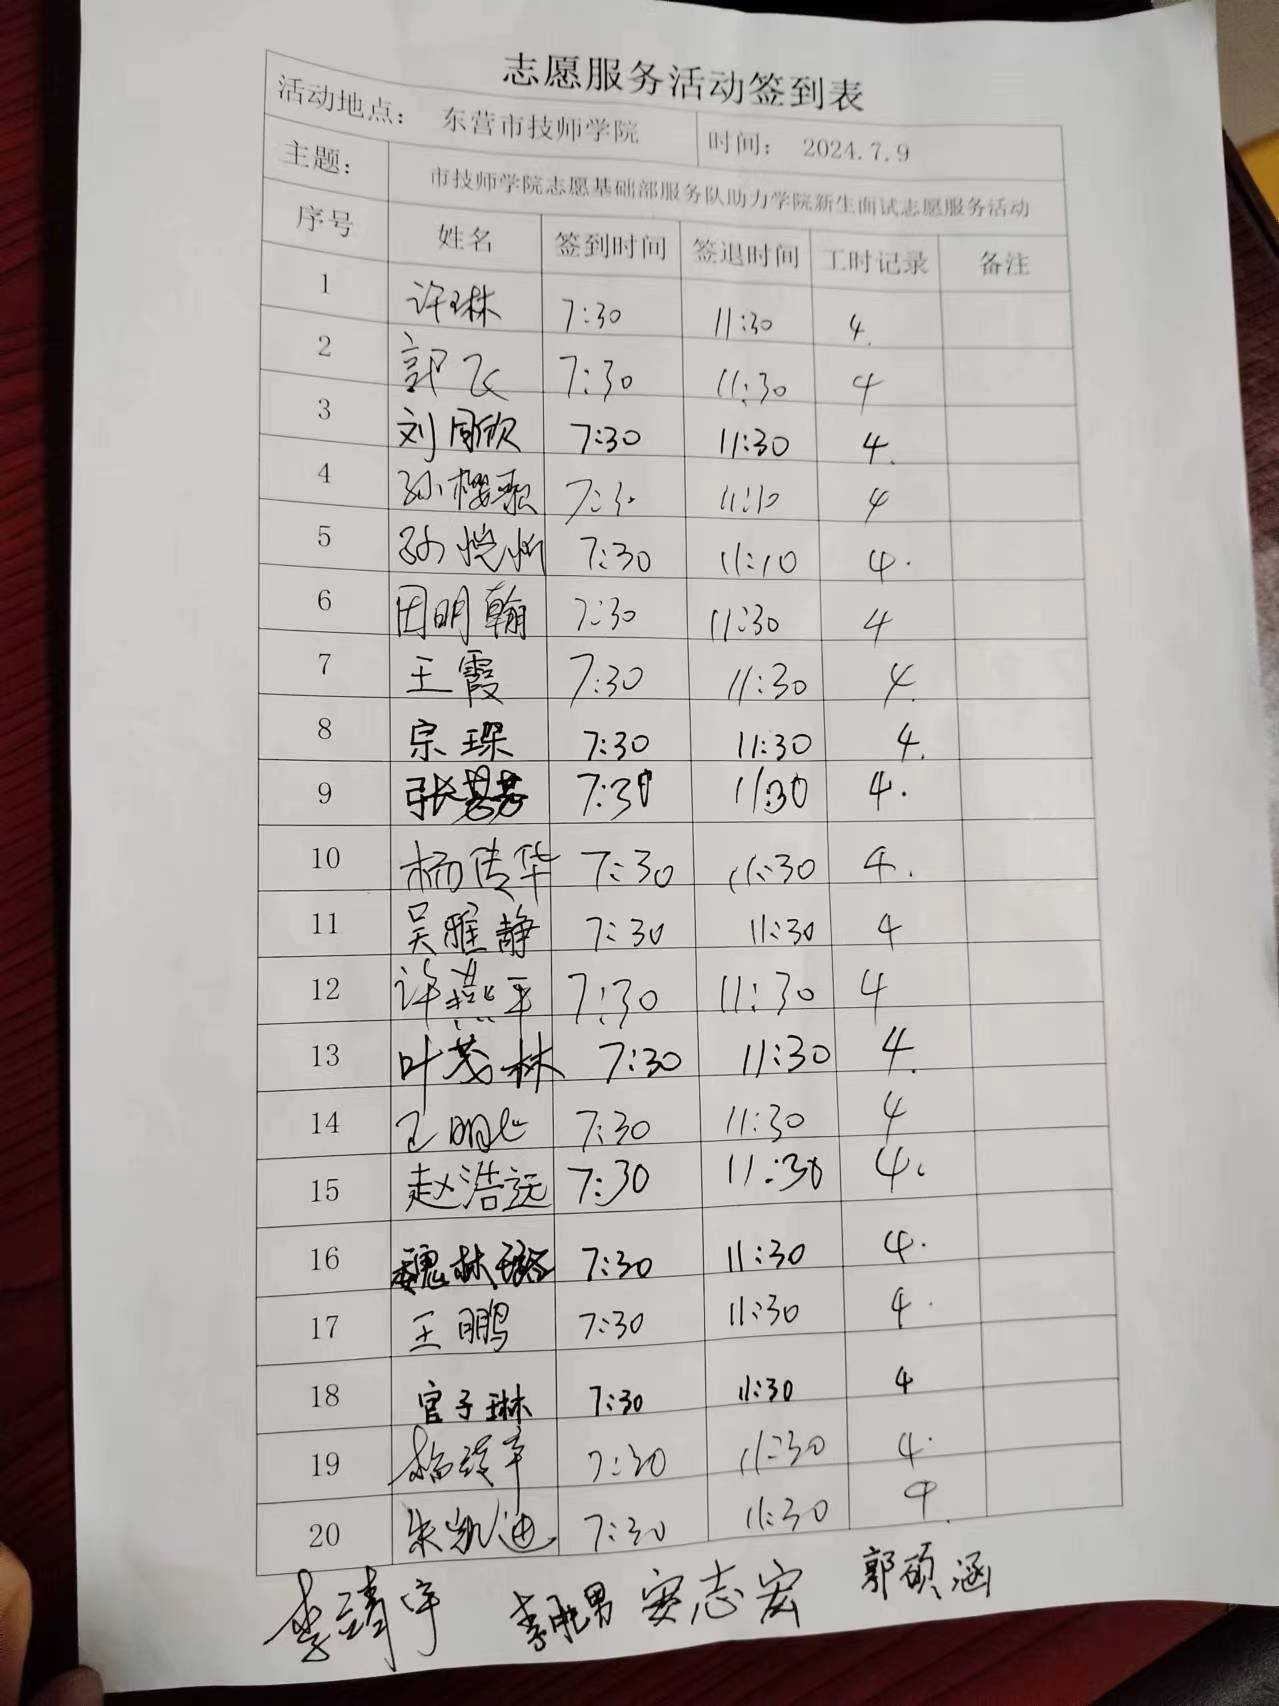 志愿服务活动签到表
活动地点： 东营市技师学院 时间： 2024.7.9
主题： 市技师学院志愿基础部服务队助力学院新生面试志愿服务活动
序号 姓名 签到时间 签退时间 工时记录 备注
1 许琳 7:30 11:30 4.
2 郭飞 7:30 11:30 4
3 刘 7:30 11:30 4.
4 孙樱 4
5 孙悦 7:30 11:10 4.
6 田明翰 7:30 11:30 4
7 王霞 7:30 11:30 4.
8 宗琛 7:30 11:30 4.
9 张 7:30 11:30 4.
10 杨传华 7:30 11:30 4.
11 吴雅静 7:30 11:30 4
12 许燕平 7:30 11:30 4
13 叶茂林 7:30 11:30 4.
14 王明 7:30 11:30 4
15 赵浩远 7:30 11:30 4.
16 魏林璐 7:30 11:30 4.
17 王鹏 7:30 11:30 4.
18 官子琳 7:30 11:30 4
19 杨 7:30 11:30 4.
20 朱凯迪 7:30 11:30 4.
李靖宇 李胜男 安志宏 郭硕涵